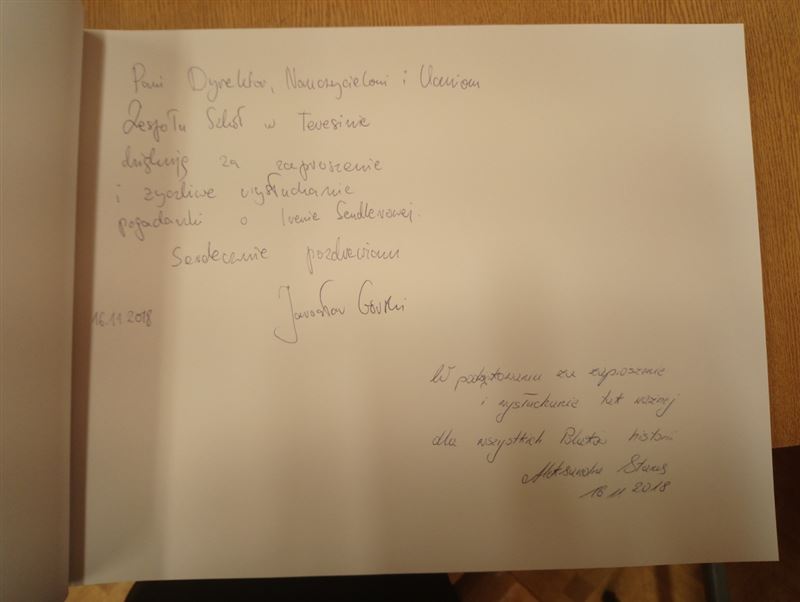 Pani Dyrektor, Nauczycielom i Uczniom
Zespołu Szkół w Teresinie
dziękuję za zaproszenie
i życzliwe wysłuchanie
pogadanki o Irenie Sendlerowej.
Serdecznie pozdrawiam
Jarosław Górski
16.11.2018
W podziękowaniu za zaproszenie
i wysłuchanie tak ważnej
dla wszystkich Polaków historii
Aleksandra
16 11 2018